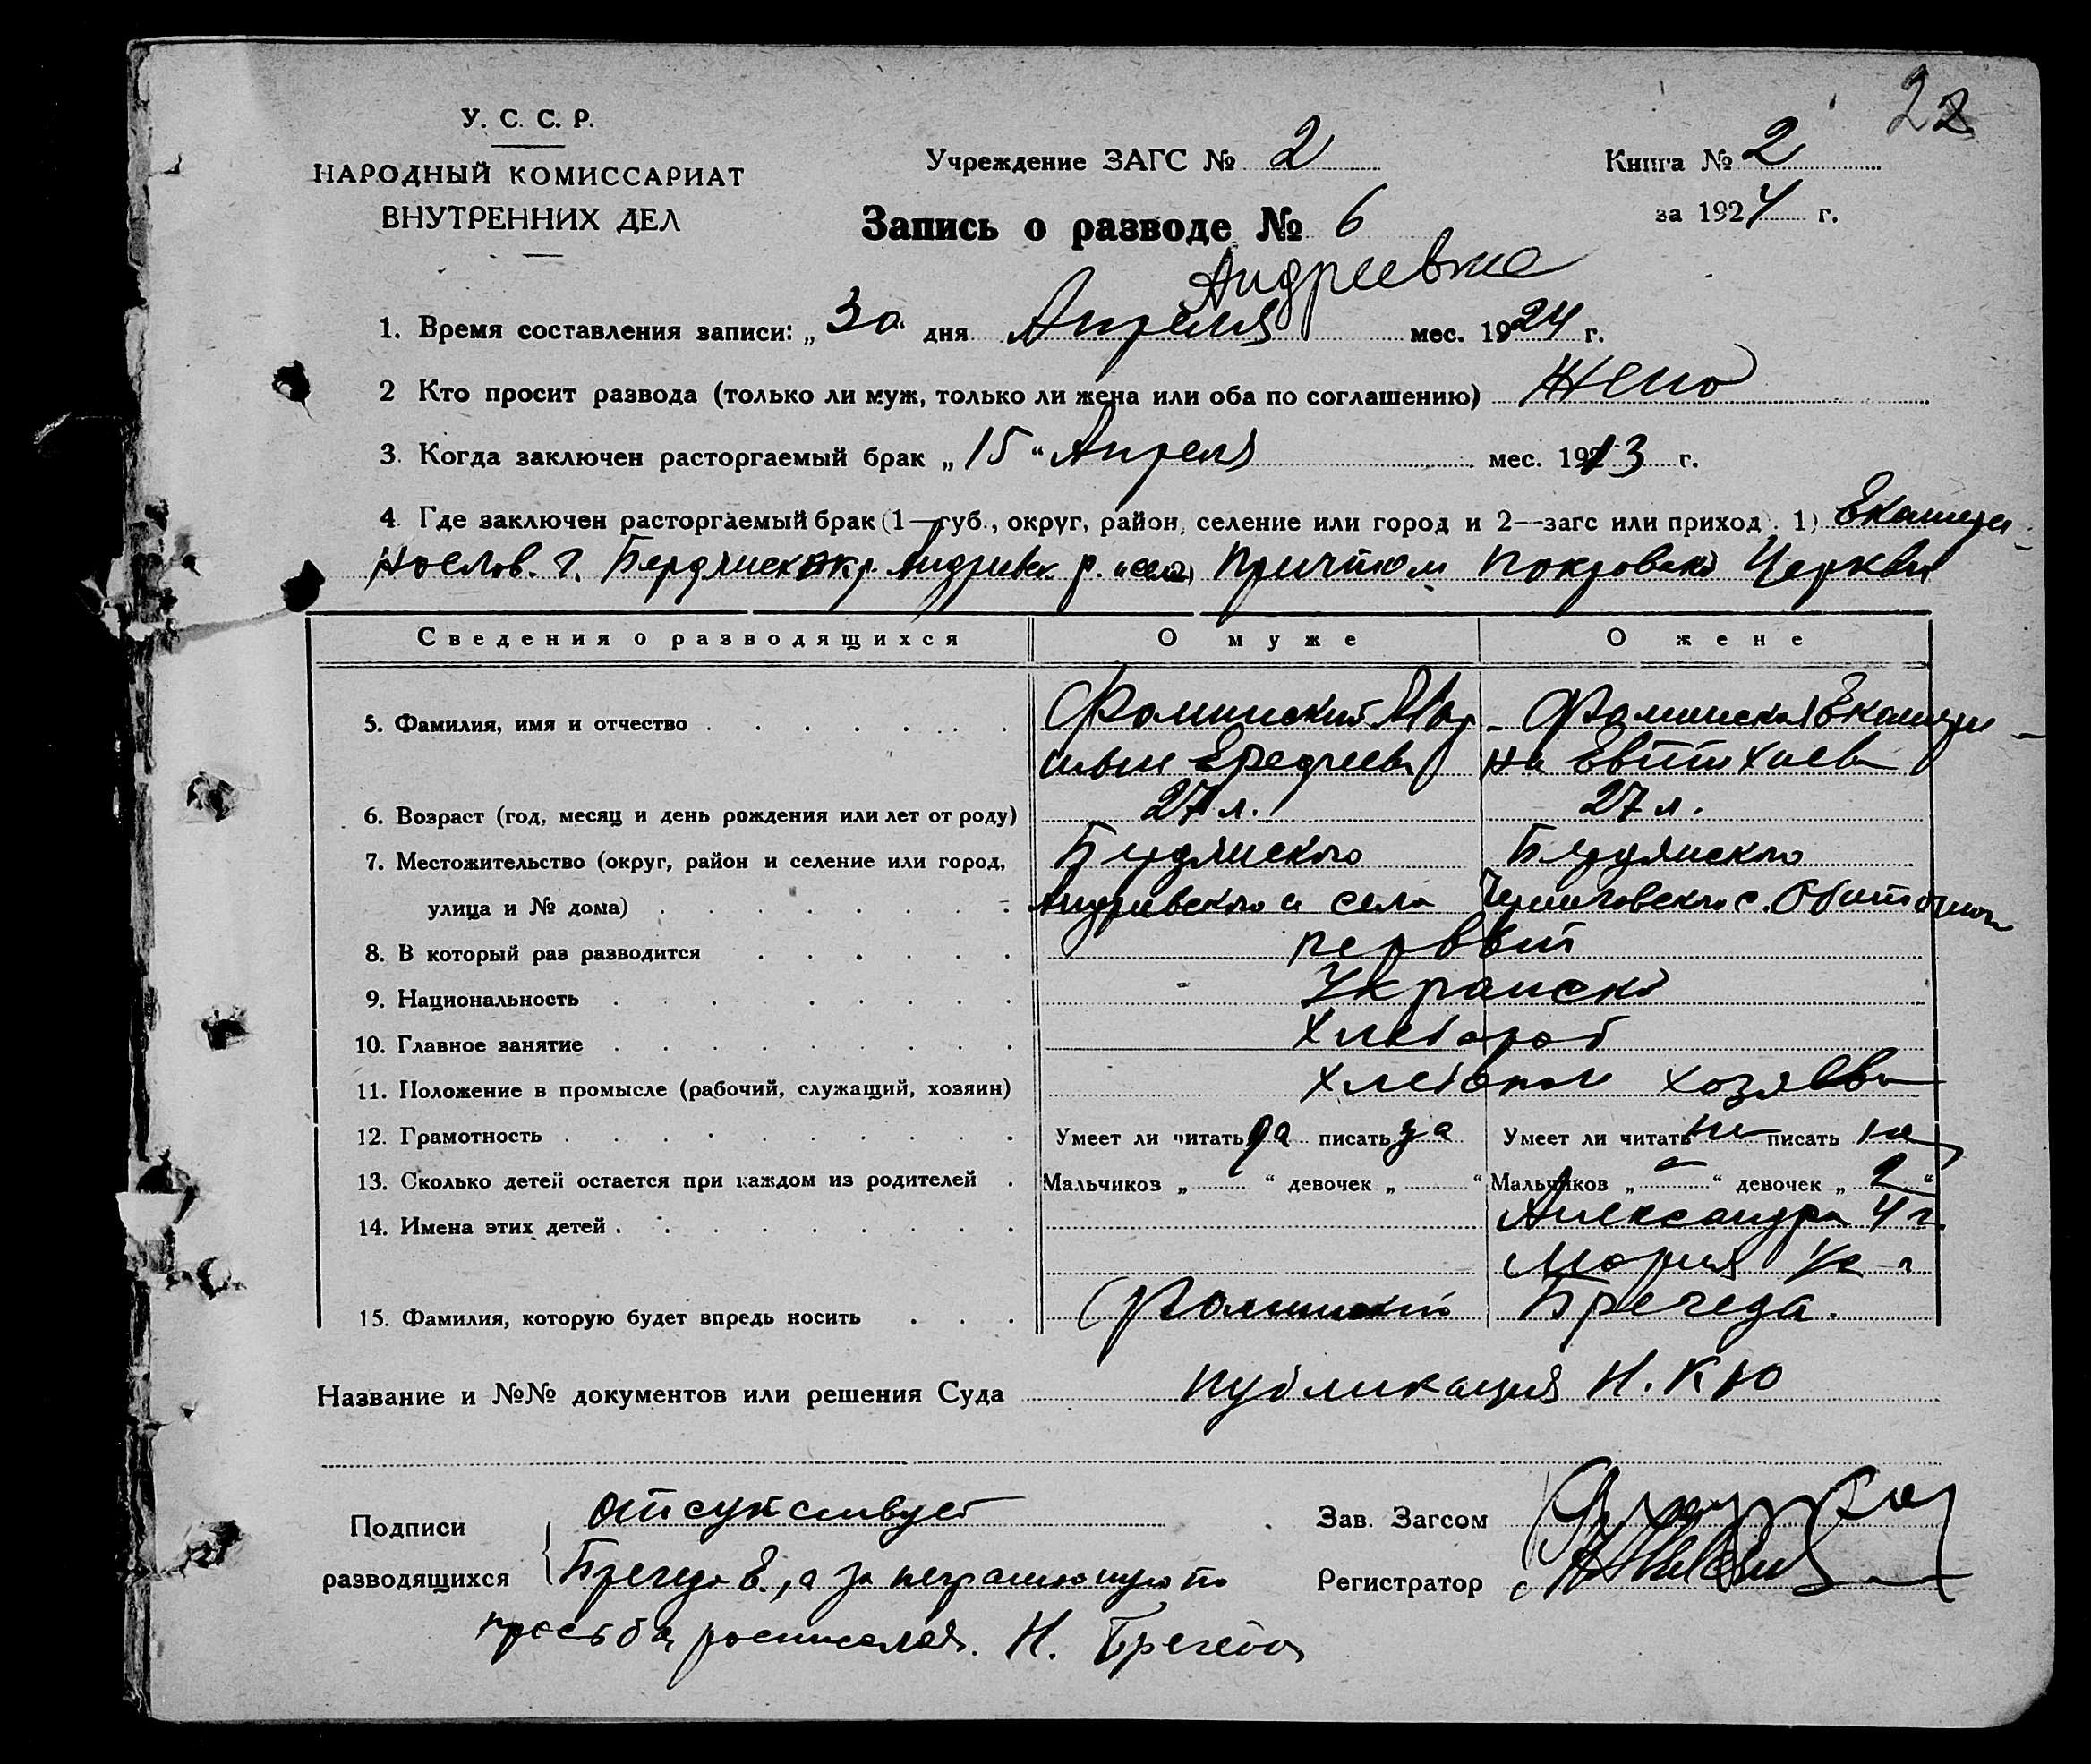 22
У. С. С. Р.
НАРОДНЫЙ КОМИССАРИАТ
ВНУТРЕННИХ ДЕЛ
Учреждение ЗАГС № 2
Книга № 2
за 1924 г.
Запись о разводе № 6
Андреевке
1. Время составления записи: „ 30 дня Апреля мес. 1924 г.
2 Кто просит развода (только ли муж, только ли жена или оба по соглашению) Жена
3. Когда заключен расторгаемый брак „ 15 “ Апреля мес. 1913 г.
4. Где заключен расторгаемый брак (1—губ., округ, район, селение или город и 2—загс или приход). 1) Екатери-
нослов. г. Бердянск окр. Андреевск. р. и села Причтом Покровской Церкви
Сведения о разводящихся О муже О жене
5. Фамилия, имя и отчество Фоминский Мар- Фоминская Екатери-
на
6. Возраст (год, месяц и день рождения или лет от роду) 27 л. 27 л.
7. Местожительство (округ, район и селение или город, Бердянского Бердянского
улица и № дома) Андреевского и села Черниговского с. Обиточное
8. В который раз разводится первый
9. Национальность
10. Главное занятие Хлебороб
11. Положение в промысле (рабочий, служащий, хозяин) хозяева
12. Грамотность Умеет ли читать да писать да Умеет ли читать не писать не
13. Сколько детей остается при каждом из родителей Мальчиков „ “ девочек „ “ Мальчиков „ — “ девочек „ 2 “
14. Имена этих детей Александра 4 г.
Мария 1/2 г
15. Фамилия, которую будет впредь носить Фоминский Бречеда.
Название и №№ документов или решения Суда публикация Н. К Ю
Подписи
разводящихся
отсутствует
Бречеда Е., а за неграмотную по
просьбе росписался. Н. Бречеда
Зав. Загсом
Регистратор